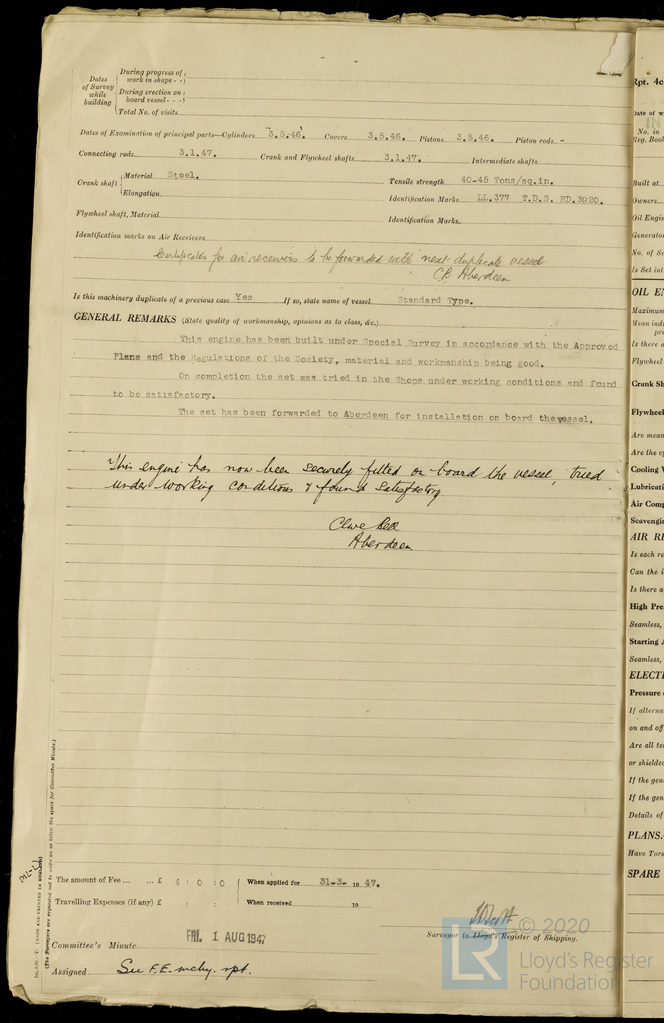 Dates of Survey while building
During progress of work in shops - -
During erection on board vessel - - -
Total No. of visits
Dates of Examination of principal parts—Cylinders 3.5.46. Covers 3.5.46. Pistons 3.5.46. Piston rods -
Connecting rods 3.1.47. Crank and Flywheel shafts 3.1.47. Intermediate shafts
Crank shaft Material Steel. Tensile strength 40-45 Tons/sq.in.
Elongation Identification Marks LL.377 T.D.S. RD.3920.
Flywheel shaft, Material Identification Marks
Identification marks on Air Receivers
Certificates for air receivers to be forwarded with next duplicate vessel
CB Aberdeen
Is this machinery duplicate of a previous case Yes If so, state name of vessel Standard Type.
GENERAL REMARKS (State quality of workmanship, opinions as to class, &c.)
This engine has been built under Special Survey in accordance with the Approved
Plans and the Regulations of the Society, material and workmanship being good.
On completion the set was tried in the Shops under working conditions and found
to be satisfactory.
The set has been forwarded to Aberdeen for installation on board the vessel.
This engine has now been securely fitted on board the vessel, tried
under working conditions & found satisfactory
Clive Bell
Aberdeen
(The Surveyors are requested not to write on or below the space for Committee Minute.)
(MADE AND PRINTED IN ENGLAND)
The amount of Fee ... ... £ 4 : 0 : 0 When applied for 31-3- 19 47.
Travelling Expenses (if any) £ : : When received 19
Surveyor to Lloyd's Register of Shipping.
Committee's Minute FRI. 1 AUG 1947
Assigned See F.E. mchy. rpt.
© 2020
LR
Lloyd's Register
Foundation
Rpt. 4c
Date of w
IN
No. in
Reg. Boo
Built at
Owners
Oil Engi
Generato
No. of S
Is Set int
OIL EN
Maximum
Mean ind
pre
Is there a
Flywheel
Crank Sh
Flywheel
Are mean
Are the c
Cooling W
Lubricati
Air Comp
Scavengi
AIR RE
Is each re
Can the i
Is there a
High Pre
Seamless,
Starting A
Seamless,
ELECT
Pressure o
If alterna
on and off
Are all te
or shielde
If the gen
If the gen
Details of
PLANS.
Have Tors
SPARE